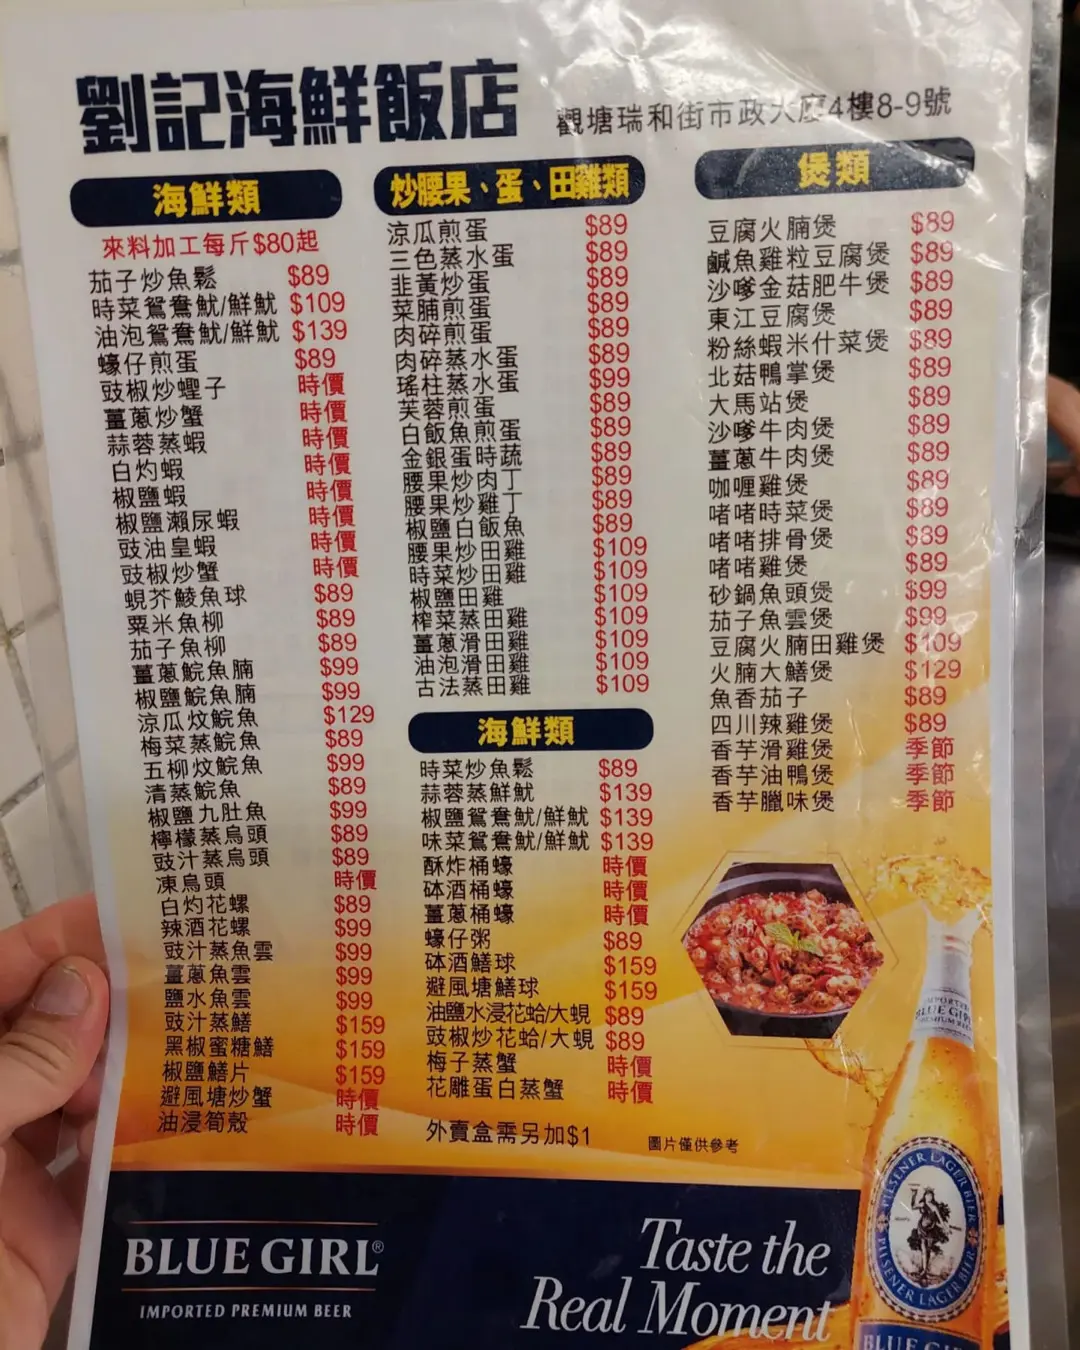 劉記海鮮飯店
觀塘瑞和街市政大廈4樓8-9號
海鮮類
來料加工每斤$80起
茄子炒魚鬆 $89
時菜鴛鴦魷/鮮魷 $109
油泡鴛鴦魷/鮮魷 $139
蠔仔煎蛋 $89
豉椒炒蟶子 時價
薑蔥炒蟹 時價
蒜蓉蒸蝦 時價
白灼蝦 時價
椒鹽蝦 時價
椒鹽瀨尿蝦 時價
豉油皇蝦 時價
豉椒炒蟹 時價
蜆芥鯪魚球 $89
粟米魚柳 $89
茄子魚柳 $89
薑蔥鯇魚腩 $99
椒鹽鯇魚腩 $99
涼瓜炆鯇魚 $129
梅菜蒸鯇魚 $89
五柳炆鯇魚 $99
清蒸鯇魚 $89
椒鹽九肚魚 $99
檸檬蒸烏頭 $89
豉汁蒸烏頭 $89
凍烏頭 時價
白灼花螺 $89
辣酒花螺 $99
豉汁蒸魚雲 $99
薑蔥魚雲 $99
鹽水魚雲 $99
豉汁蒸鱔 $159
黑椒蜜糖鱔 $159
椒鹽鱔片 $159
避風塘炒蟹 時價
油浸筍殼 時價
炒腰果、蛋、田雞類
涼瓜煎蛋 $89
三色蒸水蛋 $89
韭黃炒蛋 $89
菜脯煎蛋 $89
肉碎煎蛋 $89
肉碎蒸水蛋 $89
瑤柱蒸水蛋 $99
芙蓉煎蛋 $89
白飯魚煎蛋 $89
金銀蛋時蔬 $89
腰果炒肉丁 $89
腰果炒雞丁 $89
椒鹽白飯魚 $89
腰果炒田雞 $109
時菜炒田雞 $109
椒鹽田雞 $109
榨菜蒸田雞 $109
薑蔥滑田雞 $109
油泡滑田雞 $109
古法蒸田雞 $109
海鮮類
時菜炒魚鬆 $89
蒜蓉蒸鮮魷 $139
椒鹽鴛鴦魷/鮮魷 $139
味菜鴛鴦魷/鮮魷 $139
酥炸桶蠔 時價
砵酒桶蠔 時價
薑蔥桶蠔 時價
蠔仔粥 $89
砵酒鱔球 $159
避風塘鱔球 $159
油鹽水浸花蛤/大蜆 $89
豉椒炒花蛤/大蜆 $89
梅子蒸蟹 時價
花雕蛋白蒸蟹 時價
外賣盒需另加$1
圖片僅供參考
煲類
豆腐火腩煲 $89
鹹魚雞粒豆腐煲 $89
沙嗲金菇肥牛煲 $89
東江豆腐煲 $89
粉絲蝦米什菜煲 $89
北菇鴨掌煲 $89
大馬站煲 $89
沙嗲牛肉煲 $89
薑蔥牛肉煲 $89
咖喱雞煲 $89
啫啫時菜煲 $89
啫啫排骨煲 $89
啫啫雞煲 $89
砂鍋魚頭煲 $99
茄子魚雲煲 $99
豆腐火腩田雞煲 $109
火腩大鱔煲 $129
魚香茄子 $89
四川辣雞煲 $89
香芋滑雞煲 季節
香芋油鴨煲 季節
香芋臘味煲 季節
BLUE GIRL®
IMPORTED PREMIUM BEER
Taste the
Real Moment
IMPORTED
BLUE GIRL
PREMIUM BEER
PILSENER LAGER BIER
PILSENER LAGER BIER
BLUE GIRL